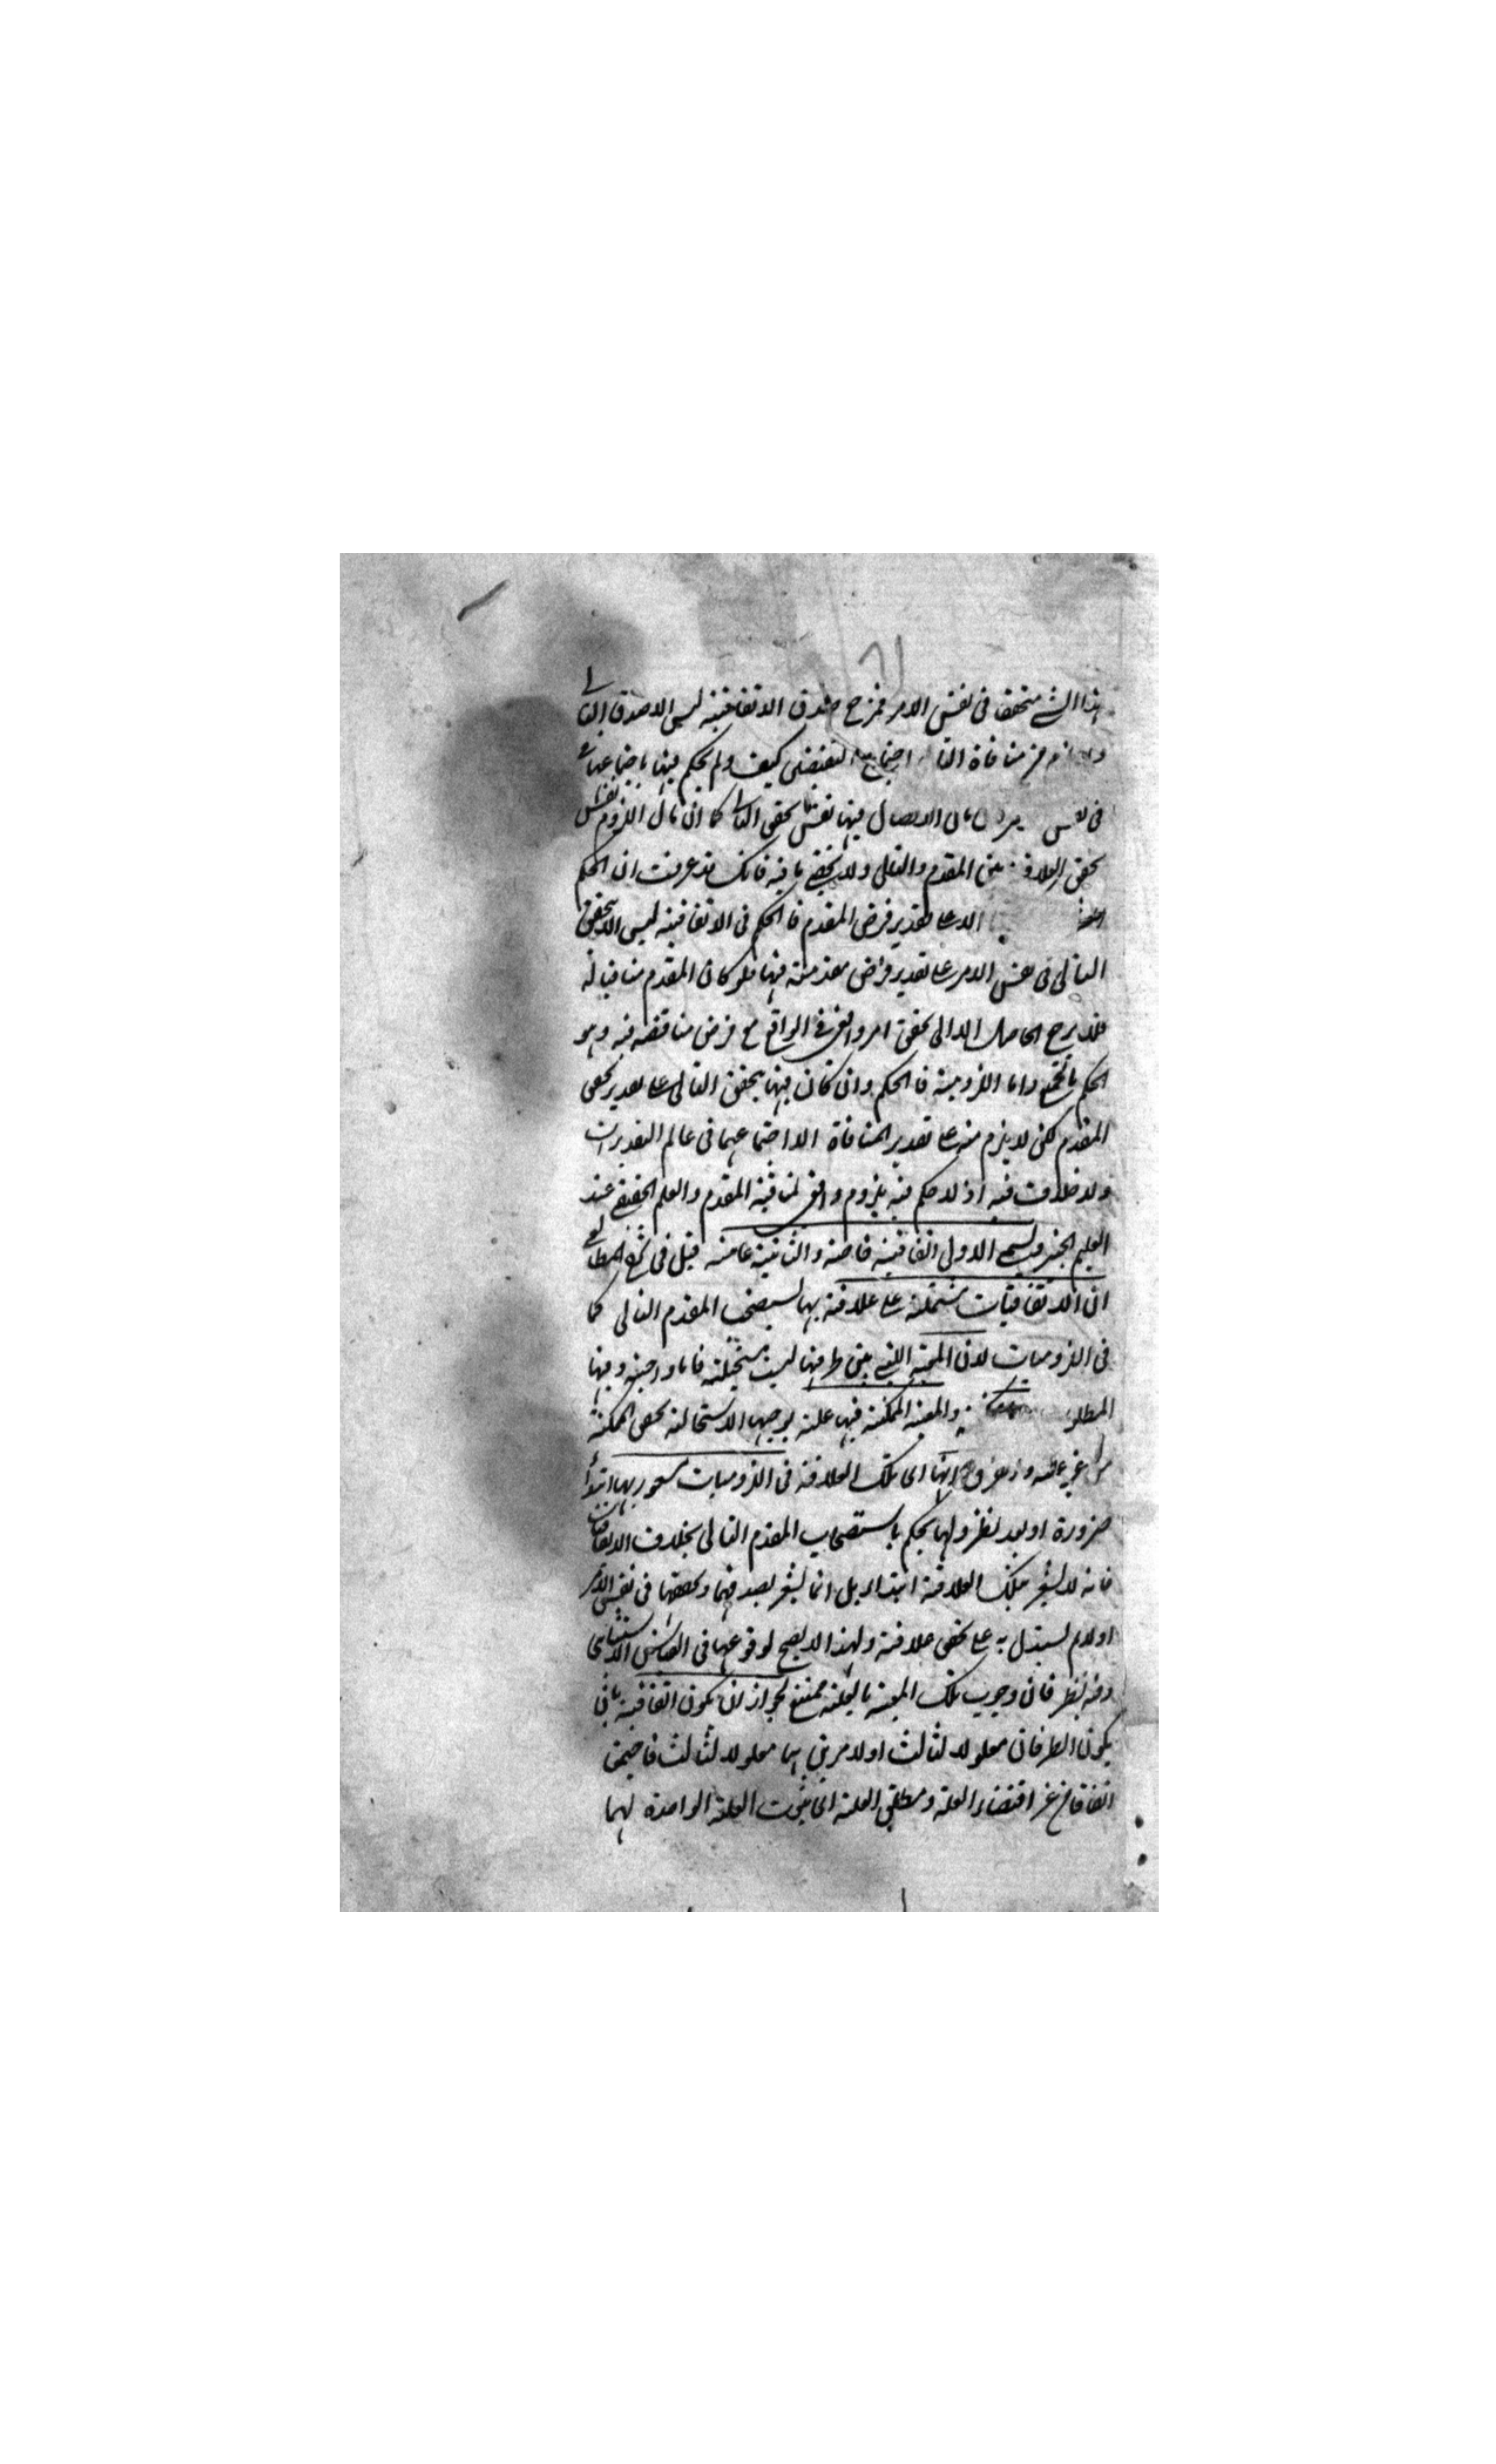 ٨١
هذا الشے متحققا فی نفس الامر فمرجح صدق الاتفاقیة لیس الا صدق التالی
من منافاة اجتماع النقیضین کیف ولم یحکم فیها باجتماعهما
فی نفس الاتصال فیها نفس تحقق التالی کما ان مآل اللزوم نفس
تحقق العلاقة بین المقدم والتالی ولا یخفی ما فیه فانک قد عرفت ان الحکم
الا علی تقدیر فرض المقدم فالحکم فی الاتفاقیة لیس الا بتحقق
التالی فی نفس الامر علی تقدیر فرض مقدمته فیها فلو کان المقدم منافیا له
فلا یرجع الحاصل الا الی تحقق امر واقعی فی الواقع مع فرض مناقضه فیه وهو
الحکم واما اللزومیة فالحکم وان کان فیها بتحقق التالی علی تقدیر تحقق
المقدم لکن لا یلزم منه علی تقدیر المنافاة الا اجتماعهما فی عالم التقدیرات
ولا خلف فیه اذ لا حکم فیه بلزوم واقعی لمنافیة المقدم والعلم الحقیقی عند
العلیم الخبیر ویسمی الاولی اتفاقیة خاصة والثانیة عامة قیل فی شرح المطالع
ان الاتفاقیات مشتملة علی علاقة بها یستصحب المقدم التالی کما
فی اللزومیات لان المعیة التی بین طرفیها لیست مستحیلة فاما واجبة وفیها
المطلوب والمعیة الممکنة فیها علة یوجبها لاستحالة تحقق الممکنة
من غیر علة ای تلک العلاقة فی اللزومیات مشعور بها ابتداء
ضرورة او بعد نظر ولها یحکم باستصحاب المقدم التالی بخلاف الاتفاقیات
فانه لا یشعر بتلک العلاقة ابتداء بل انما یشعر بصدقهما وتحققهما فی نفس الامر
اولا ثم یستدل به علی تحقق علاقة ولهذا لا یصح لوقوعها فی القیاس الاستثنائی
وفیه نظر فان وجوب تلک المعیة بالعلة ممتنع لجواز ان یکون اتفاقیة بان
یکون الطرفان معلولا لثالث او لامرین هما معلولا لثالث فاجتمعا
اتفاقا من غیر اقتضاء العلة ومطلق العلة ای ثبوت العلة الواحدة لهما